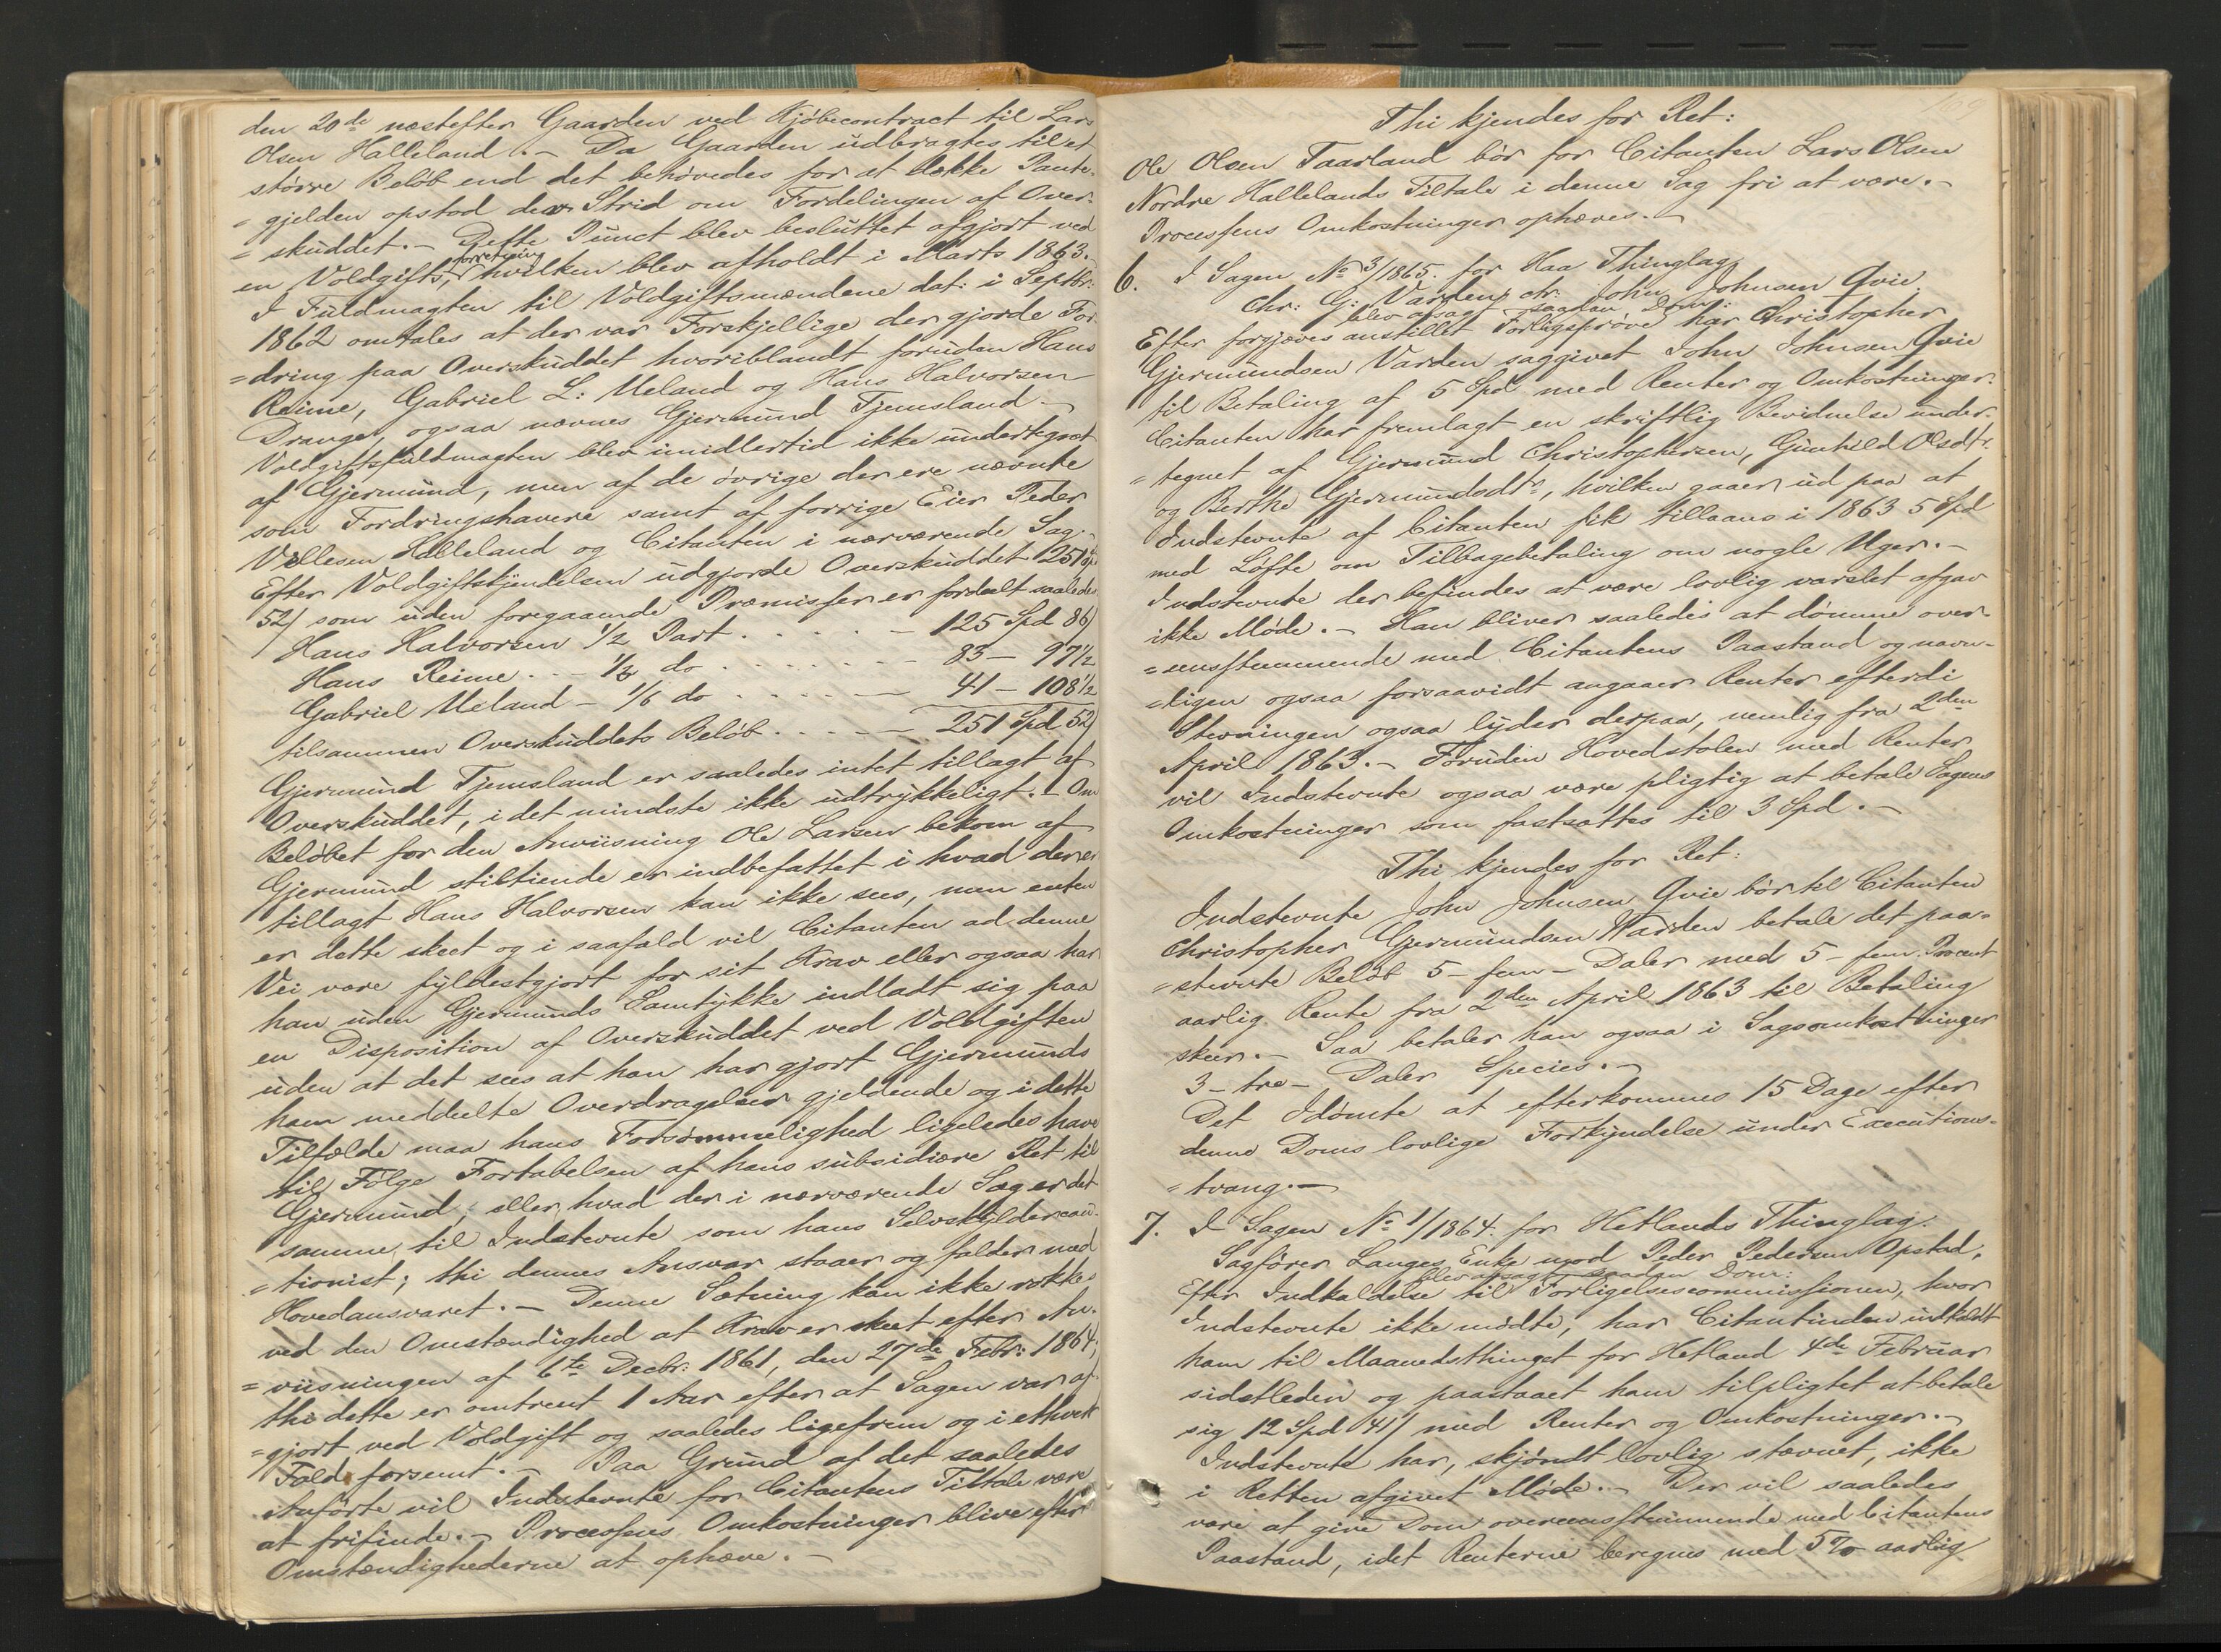 den 20de næstefter Gaarden ved Kjöbecontract til Lars
Olsen Halleland. – Da Gaarden udbragtes til et
större Belöb end det behövedes for at dække Pante-
=gjelden opstod der Strid om Fordelingen af Over-
=skuddet. – Dette Punct blev besluttet afgjort ved
en Voldgifts, forretning hvilken blev afholdt i Marts 1863. –
I Fuldmagten til Voldgiftsmændene dat: i Septbr:
1862 omtales at der var Forskjellige der gjorde For-
=dring paa Overskuddet hvoriblandt foruden Hans
Reime, Gabriel L: Ueland og Hans Halvorsen
Drange, ogsaa nævnes Gjermund Tjemsland. –
Voldgiftsfuldmagten blev imidlertid ikke undertegnet
af Gjermund, men af de övrige der ere nævnte
som Fordringshavere samt af forrige Eier Peder
Villesen Halleland og Citanten i nærværende Sag. –
Efter Voldgiftskjendelsen udgjorde Overskuddet 251 Spd
52 som uden foregaaende Præmisser er fordeelt saaledes
Hans Halvorsen 1/2 Part . . . . . – 125 Spd 86
Hans Reime . . – 1/3 do . . . . . . . – 83 – 97 1/2
Gabriel Ueland – 1/6 do . . . . . . – 41 – 108 1/2
tilsammen Overskuddets Belöb . . . . – 251 Spd 52
Gjermund Tjemsland er saaledes intet tillagt af
Overskuddet, i det mindste ikke udtrykkeligt. – Om
Belöbet for den Anviisning Ole Larsen bekom af
Gjermund stiltiende er indbefattet i hvad der er
tillagt Hans Halvorsen kan ikke sees, men enten
er dette skeet og i saafald vil Citanten ad denne
Vei være fyldestgjort for sit Krav eller ogsaa har
han uden Gjermunds Samtykke indladt sig paa
en Disposition af Overskuddet ved Voldgiften
uden at det sees at han har gjort Gjermunds
ham meddeelte Overdragelser gjeldende og i dette
Tilfælde maa hans Forsömmelighed ligeledes have
til Fölge Fortabelsen af hans subsidiære Ret til
Gjermund, eller, hvad der i nærværende Sag er det
samme, til Indstevnte som hans Selvskyldercau-
=tionist; thi dennes Ansvar staaer og falder med
Hovedansvaret. – Denne Sætning kan ikke rokkes
ved den Omstændighed at Krav er skeet efter An-
=viisningen af 6te Decbr: 1861, den 27de Febr: 1864,
thi dette er omtrent 1 Aar efter at Sagen var af-
=gjort ved Voldgift og saaledes ligefrem og i ethvert
Fald forsent. – Paa Grund af det saaledes
Anförte vil Indstevnte for Citantens Tiltale være
at frifinde. – Processens Omkostninger blive efter
Omstændighederne at ophæve. –
Thi kjendes for Ret:
Ole Olsen Taarland bör for Citanten Lars Olsen
Nordre Hallelands Tiltale i denne Sag fri at være. –
Processens Omkostninger ophæves. –
6. I Sagen No 3/1865. for Haa Thinglag
Chr: G: Varden ctr: John Johnsen Qvie
blev afsagt saadan Dom:
Efter forgjæves anstillet Forligspröve har Christopher
Gjermundsen Varden saggivet John Johnsen Qvie
til Betaling af 5 Spd med Renter og Omkostninger.
Citanten har fremlagt en skriftlig Bevidnelse under-
=tegnet af Gjermund Christophersen, Gunhild Olsdtr
og Berthe Gjermundsdtr, hvilken gaaer ud paa at
Indstevnte af Citanten fik tillaans i 1863 5 Spd
med Löfte om Tilbagebetaling om nogle Uger. –
Indstevnte der befindes at være lovlig varslet afgav
ikke Möde. – Han bliver saaledes at dömme over-
=eensstemmende med Citantens Paastand og navn-
=ligen ogsaa forsaavidt angaaer Renter efterdi
Stevningen ogsaa lyder derpaa, nemlig fra 2den
April 1863. – Foruden Hovedstolen med Renter
vil Indstevnte ogsaa være pligtig at betale Sagens
Omkostninger som fastsættes til 3 Spd. –
Thi kjendes for Ret:
Indstevnte John Johnsen Qvie bör til Citanten
Christopher Gjermundsen Warden betale det paa-
=stevnte Belöb 5 – fem – Daler med 5 – fem Procent
aarlig Rente fra 2den April 1863 til Betaling
skeer. – Saa betaler han ogsaa i Sagsomkostninger
3 – tre – Daler Species. –
Det Idömte at efterkommes 15 Dage efter
denne Doms lovlige Forkyndelse under Executions-
=tvang. –
7. I Sagen No 1/1864. for Hetlands Thinglag.
Sagförer Langes Enke mod Peder Pedersen Opstad,
blev afsagt saadan Dom:
Efter Indkaldelse til Forligelsescommissionen, hvor
Indstevnte ikke mödte, har Citantinden indkaldt
ham til Maanedsthinget for Hetland 4de Februar
sidstleden og paastaaet ham tilpligtet at betale
sig 12 Spd 41 med Renter og Omkostninger. –
Indstevnte har, skjöndt lovlig stævnet, ikke
i Retten afgivet Möde. – Der vil saaledes
være at give Dom overeensstemmende med Citantens
Paastand, idet Renterne beregnes med 5% aarlig